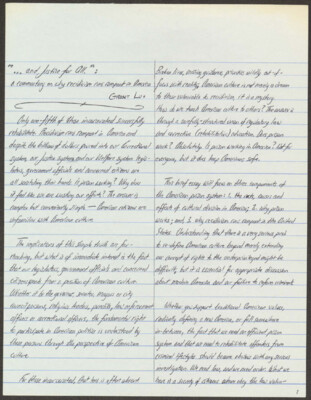 "... and justice for All.":
a commentary on why recidivism runs rampant in America
Only one-fifth of those incarcerated successfully
rehabilitate. Recidivism runs rampant in America and
despite the billions of dollars poured into our correctional
system, our justice system and our welfare system, legis-
lators, government officials and concerned citizens are
left scratching their heads. Is prison working? Why does
it feel like we are wasting our efforts? The answer is
complex but conveniently simple — American citizens are
unfamiliar with American culture.
The implications of this simple truth are far-
reaching, but what is of immediate interest is the fact
that our legislators, government officials and concerned
citizens speak from a position of American culture.
Whether it be the governor, senator, mayor or city
law enforcement
officers or correctional officers, the fundamental right
to participate in American politics is understood by
these persons through the perspective of American
culture.
For those incarcerated, that lens is often absent
Broken
focus with reality. American culture is not merely a dream
to those vulnerable to recidivism, it is a mystery.
How do we teach American culture to others? The answer is
through a carefully-structured union of regulatory laws
and correction (rehabilitation) education. Does prison
work? Absolutely. Is prison working in America? Not for
everyone, but it does keep Americans safe.
This brief essay will focus on three components of
the American prison system: 1. the roots, causes and
effect of cultural division in America; 2. why prison
works; and, 3. why recidivism runs rampant in the United
States. Understanding that there is a very serious need
to re-define American culture beyond merely extending
our concept of rights to the underprivileged might be
difficult, but it is essential for appropriate discussion
about modern America and our failure to reform criminals.
Whether you support traditional American values,
radically defining a new America, or fall somewhere
in-between, the fact that we need an efficient prison
system and that we need to rehabilitate offenders from
criminal lifestyles should become obvious with any serious
investigation. We need laws, and we need order. What we
have is a society of citizens
1